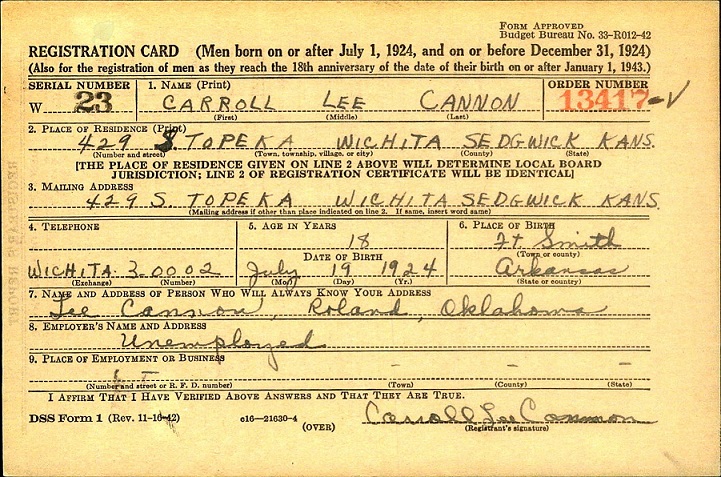 FORM APPROVED
Budget Bureau No. 33-R012-42
REGISTRATION CARD (Men born on or after July 1, 1924, and on or before December 31, 1924)
(Also for the registration of men as they reach the 18th anniversary of the date of their birth on or after January 1, 1943.)
SERIAL NUMBER 1. NAME (Print) ORDER NUMBER
W 23 CARROLL LEE CANNON 13417-V
(First) (Middle) (Last)
2. PLACE OF RESIDENCE (Print)
429 S TOPEKA WICHITA SEDGWICK KANS.
(Number and street) (Town, township, village, or city) (County) (State)
[THE PLACE OF RESIDENCE GIVEN ON LINE 2 ABOVE WILL DETERMINE LOCAL BOARD
JURISDICTION; LINE 2 OF REGISTRATION CERTIFICATE WILL BE IDENTICAL]
3. MAILING ADDRESS
429 S. TOPEKA WICHITA SEDGWICK KANS.
(Mailing address if other than place indicated on line 2. If same, insert word same)
4. TELEPHONE 5. AGE IN YEARS 6. PLACE OF BIRTH
18 Ft. Smith
DATE OF BIRTH (Town or county)
WICHITA 3-0002 July 19 1924 Arkansas
(Exchange) (Number) (Mo.) (Day) (Yr.) (State or country)
7. NAME AND ADDRESS OF PERSON WHO WILL ALWAYS KNOW YOUR ADDRESS
Lee Cannon, Roland, Oklahoma
8. EMPLOYER'S NAME AND ADDRESS
Unemployed
9. PLACE OF EMPLOYMENT OR BUSINESS
(Number and street or R. F. D. number) (Town) (County) (State)
I AFFIRM THAT I HAVE VERIFIED ABOVE ANSWERS AND THAT THEY ARE TRUE.
DSS Form 1 (Rev. 11-16-42) c16-21630-4 (OVER) Carroll Lee Cannon
(Registrant's signature)